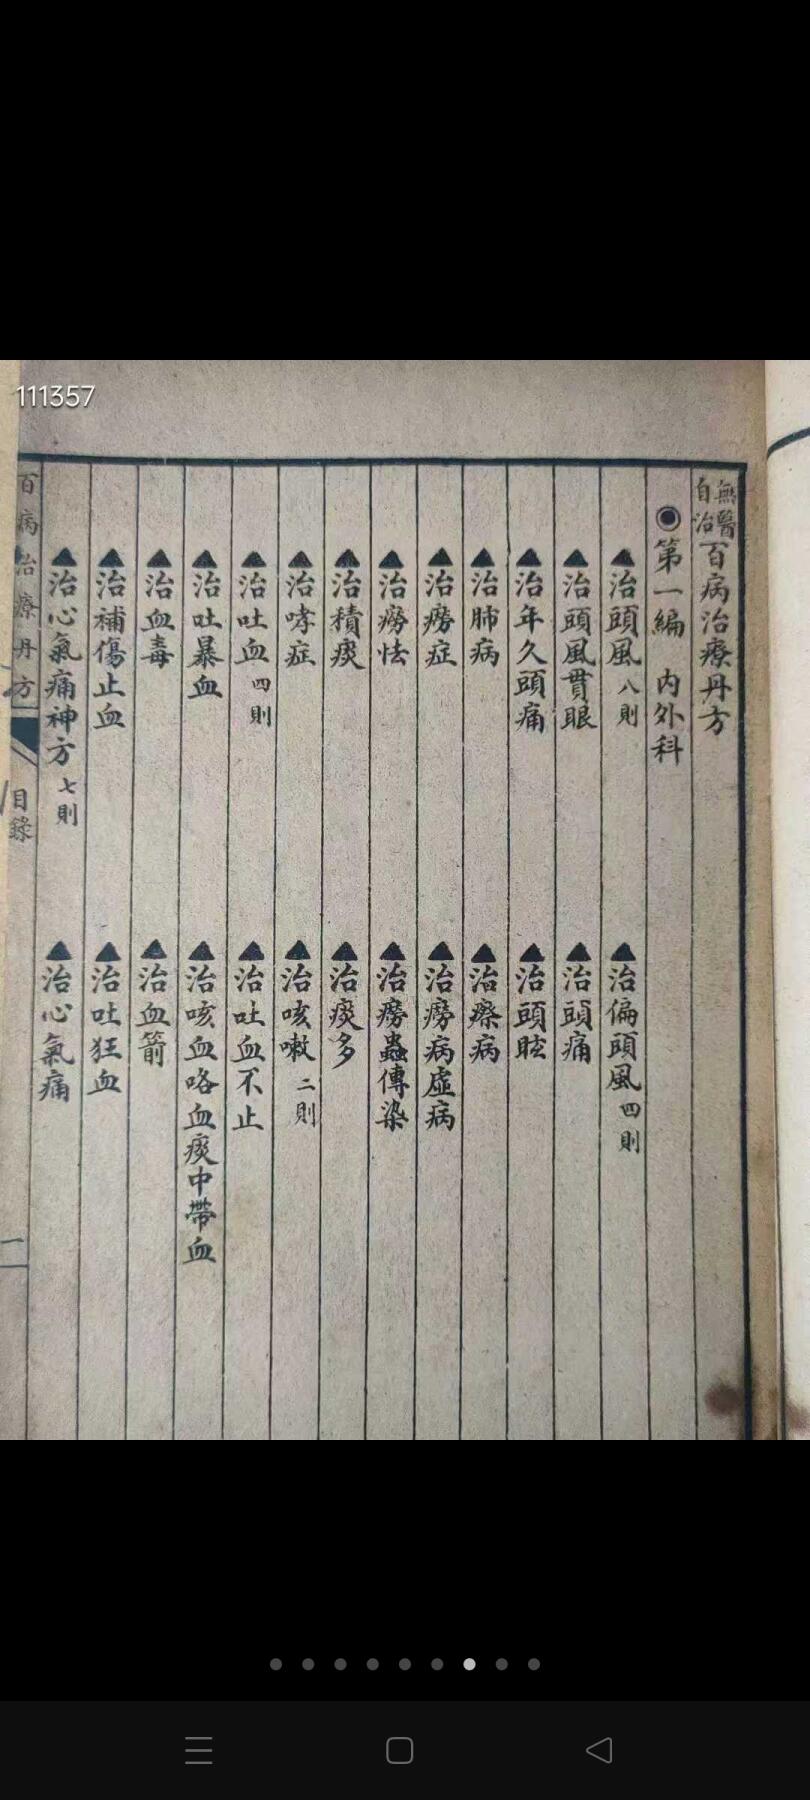 111357
無醫自治百病治療丹方
◉第一編 內外科
▲治頭風 八則 ▲治偏頭風 四則
▲治頭風貫眼 ▲治頭痛
▲治年久頭痛 ▲治頭眩
▲治肺病 ▲治瘵病
▲治癆症 ▲治癆病虛病
▲治癆怯 ▲治癆蟲傳染
▲治積痰 ▲治痰多
▲治哮症 ▲治咳嗽 二則
▲治吐血 四則 ▲治吐血不止
▲治吐暴血 ▲治咳血咯血痰中帶血
▲治血毒 ▲治血箭
▲治補傷止血 ▲治吐狂血
▲治心氣痛神方 七則 ▲治心氣痛
百病治療丹方 目錄 一